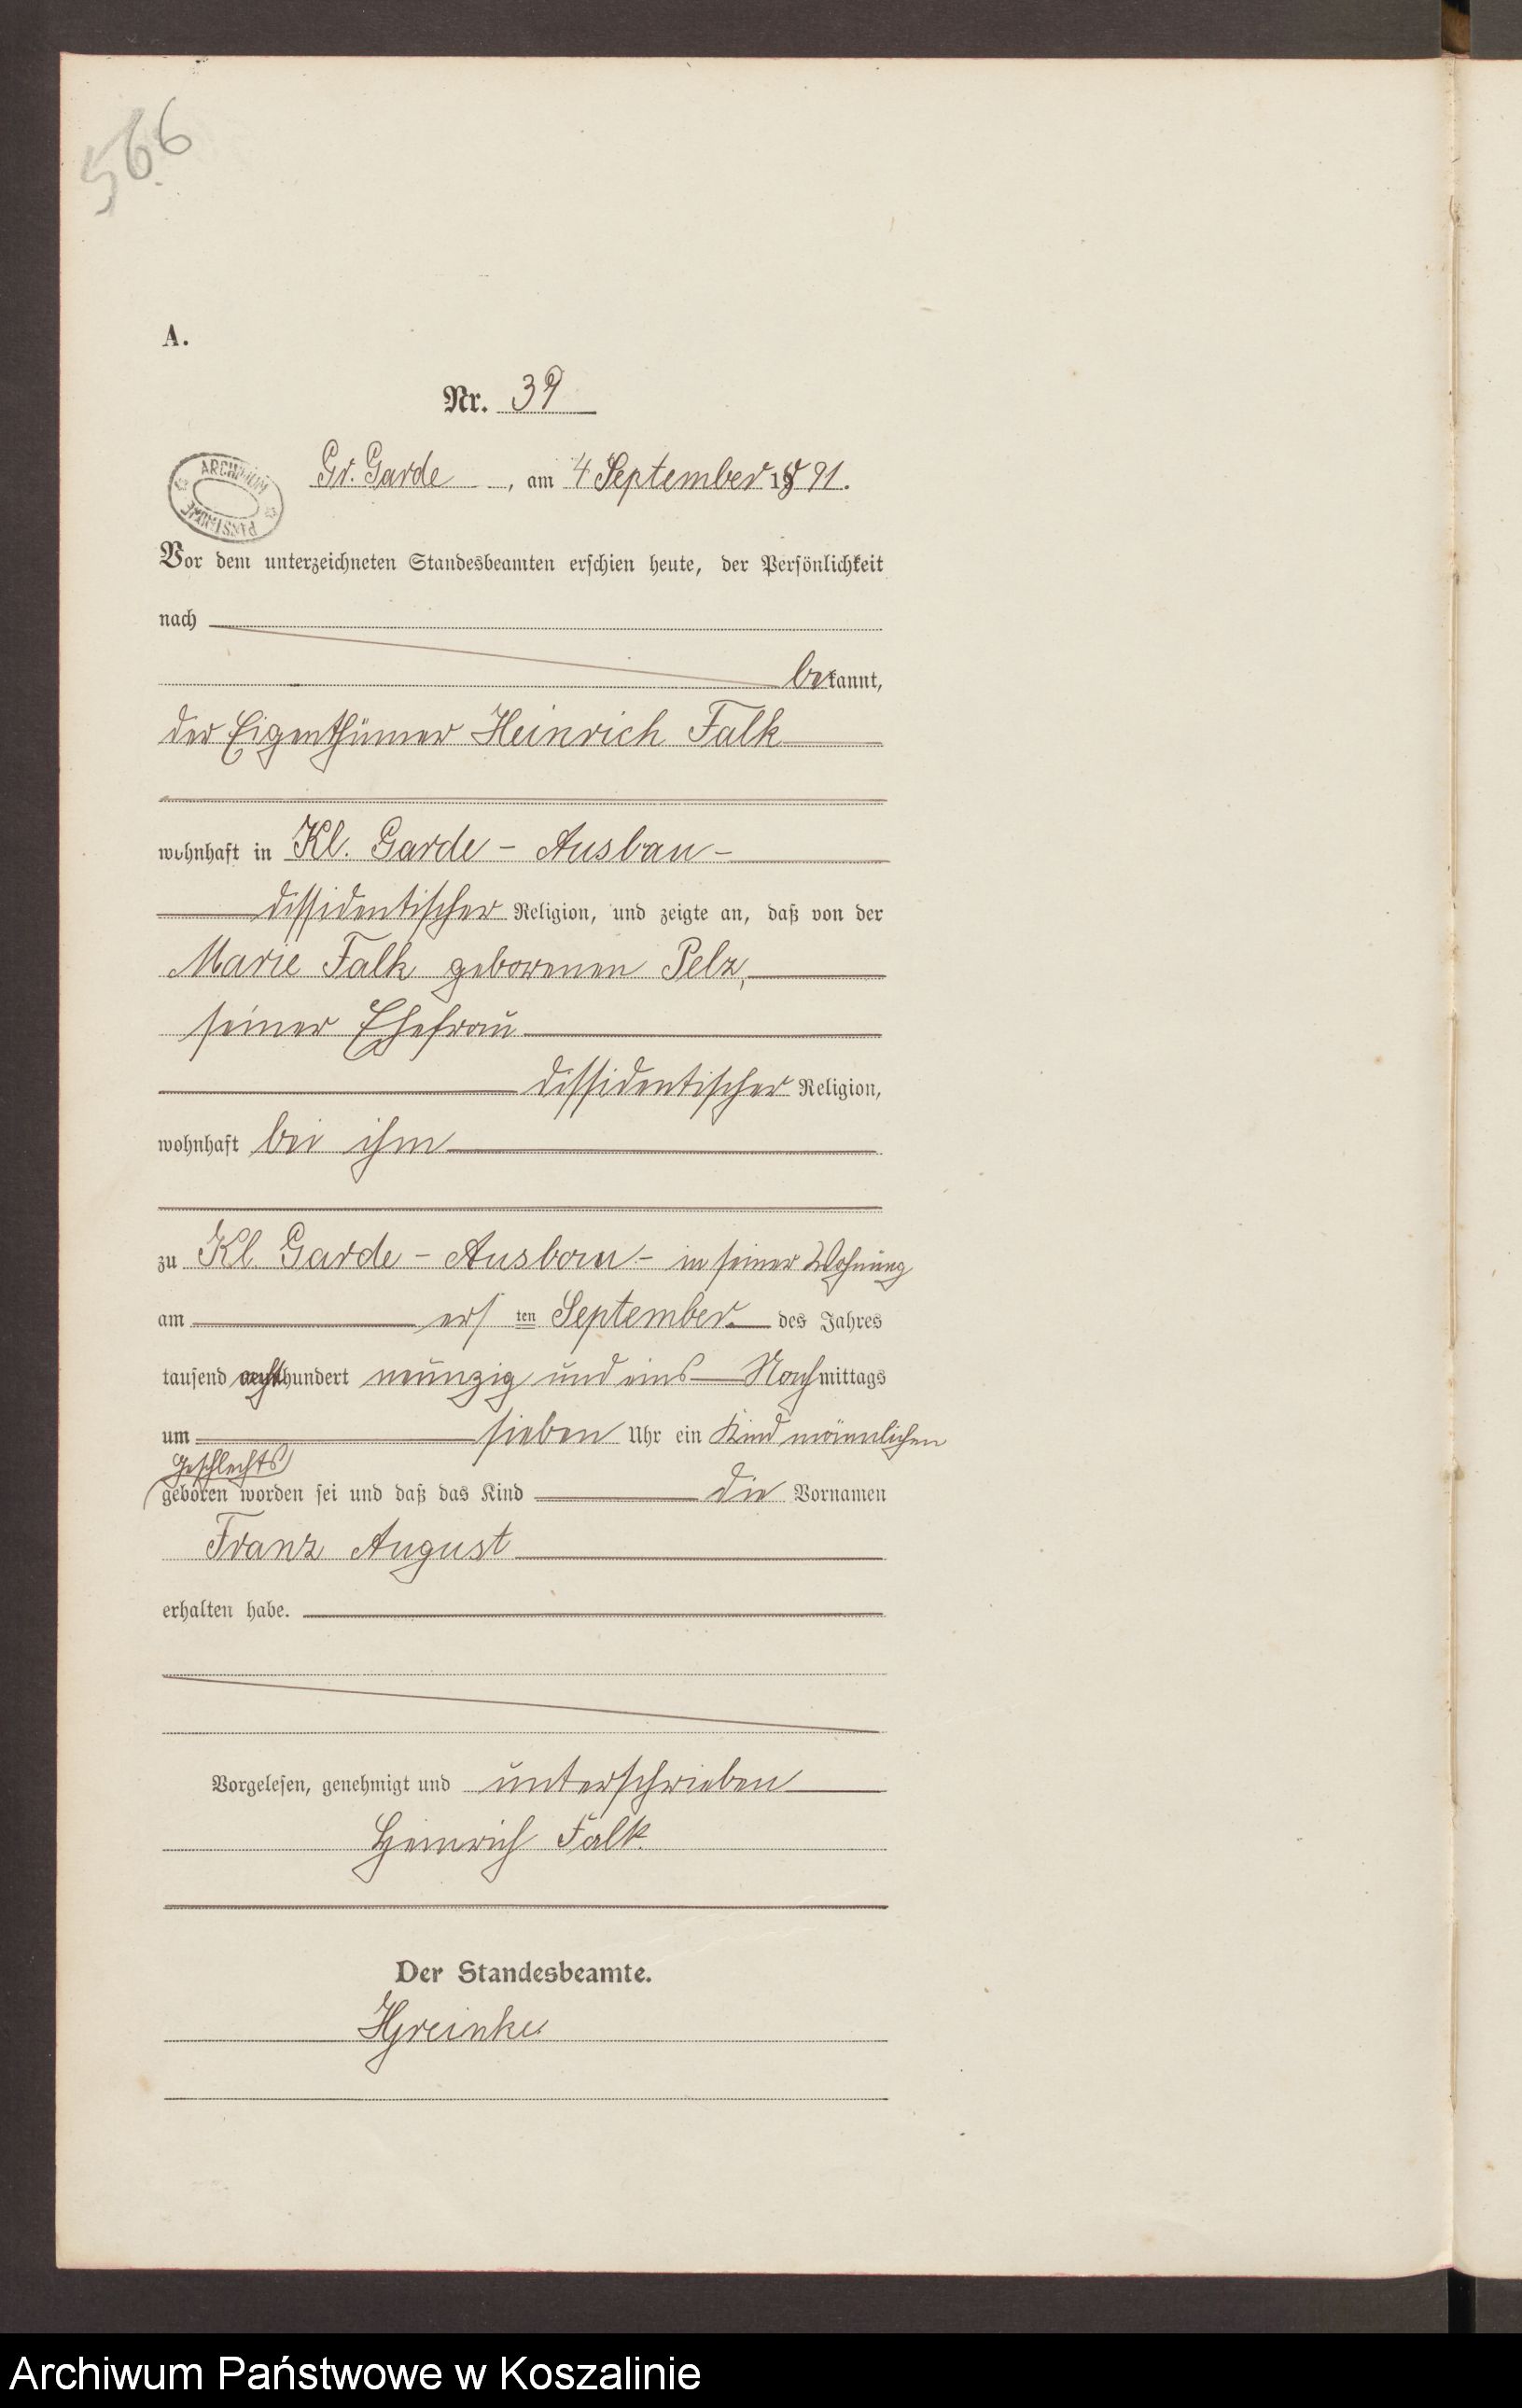 566
A.
Nr. 39
ARCHIWUM PAŃSTWOWE
Gr. Garde, am 4 September 1891.
Vor dem unterzeichneten Standesbeamten erschien heute, der Persönlichkeit
nach
bekannt,
der Eigenthümer Heinrich Falk
wohnhaft in Kl. Garde - Ausbau -
dissidentischer Religion, und zeigte an, daß von der
Marie Falk geborenen Pelz,
seiner Ehefrau
dissidentischer Religion,
wohnhaft bei ihm
zu Kl. Garde - Ausbau - in seiner Wohnung
am ers ten September des Jahres
tausend achthundert neunzig und eins Nachmittags
um sieben Uhr ein Kind männlichen
Geschlechts
geboren worden sei und daß das Kind die Vornamen
Franz August
erhalten habe.
Vorgelesen, genehmigt und unterschrieben
Heinrich Falk.
Der Standesbeamte.
Archiwum Państwowe w Koszalinie